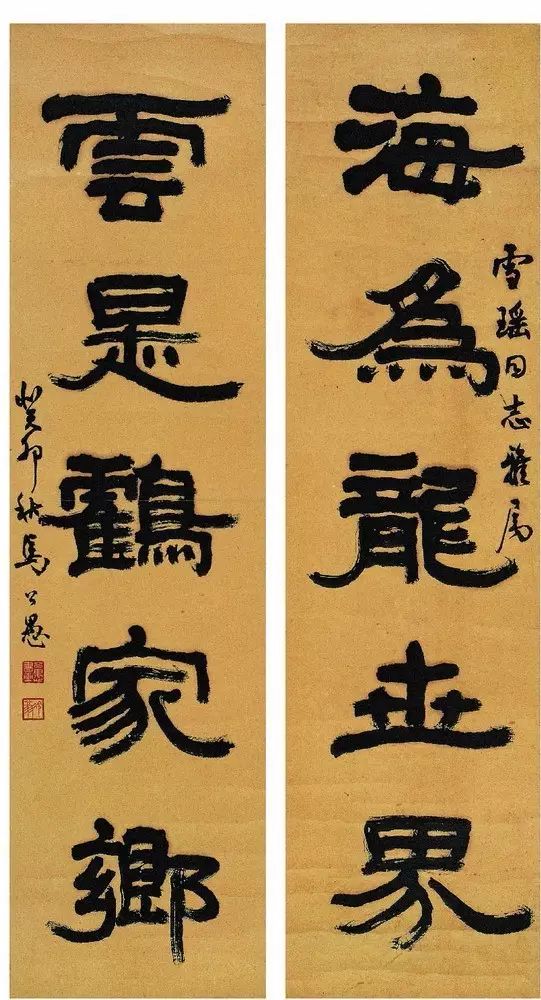 雪瑶同志雅属
海為龍世界
雲是鶴家鄉
癸卯秋馬公愚